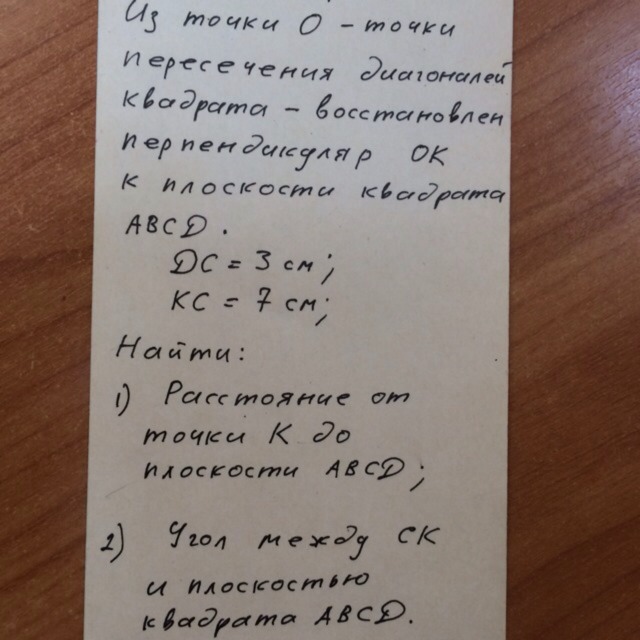 Из точки О – точки
пересечения диагоналей
квадрата – восстановлен
перпендикуляр ОК
к плоскости квадрата
ABCD.
DC = 3 см;
KC = 7 см;
Найти:
1) Расстояние от
точки К до
плоскости ABCD;
2) Угол между СК
и плоскостью
квадрата ABCD.